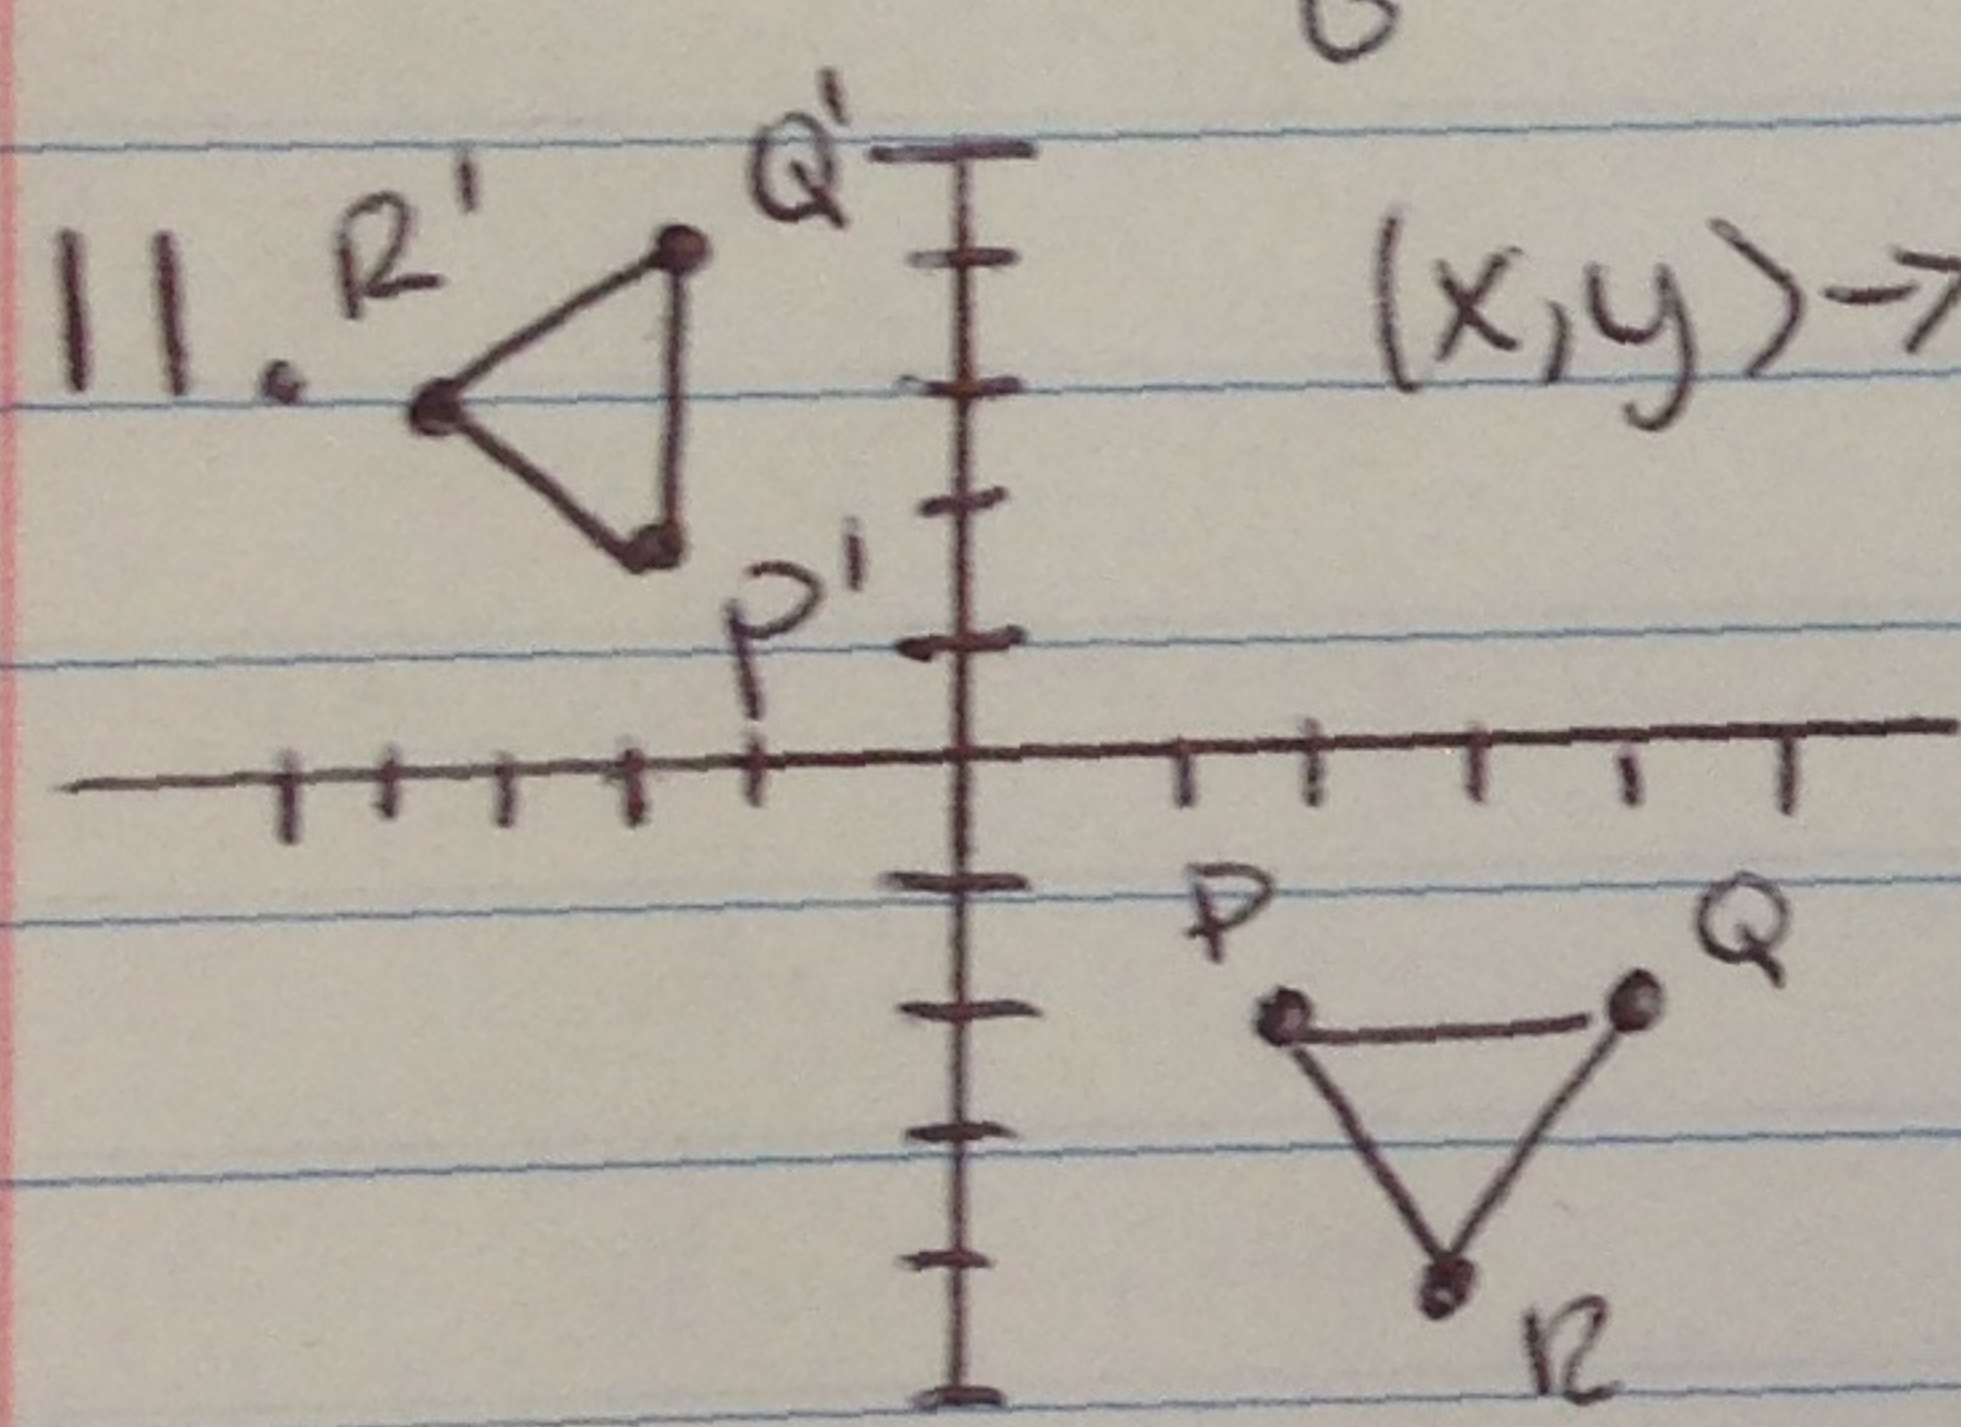 Q'
11. R'
(x,y)→
P'
P Q
R